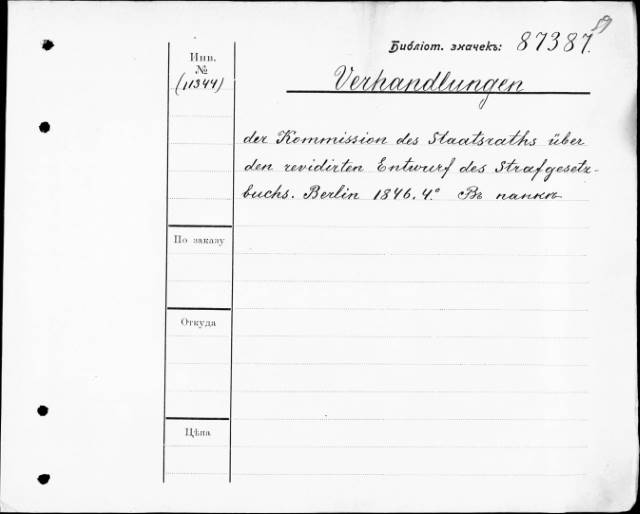 Библіот. значекъ: 87387.
Инв.
№
(11344)
Verhandlungen
der Kommission des Staatsraths über
den revidirten Entwurf des Strafgesetz-
buchs. Berlin 1846. 4.° Въ папкѣ
По заказу
Откуда
Цѣна